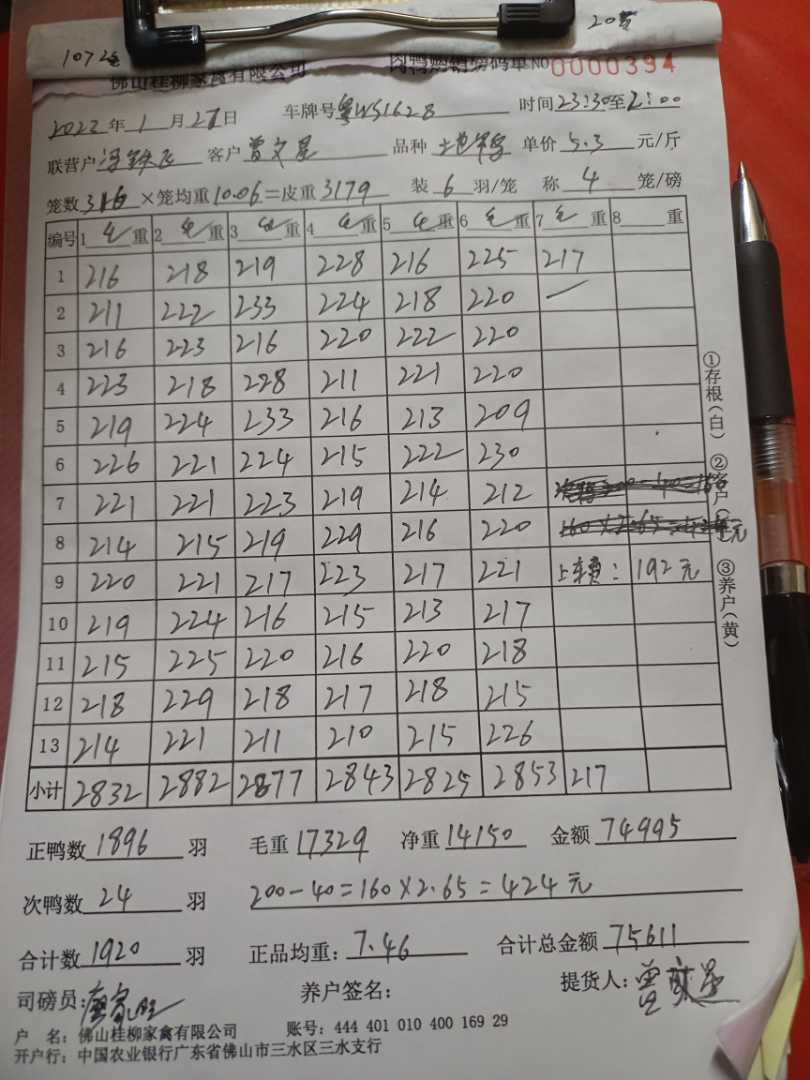 1072 20
佛山桂柳家禽有限公司 肉鸭购销磅码单NO 0000394
2023年1月27日 车牌号粤WS1628 时间23:30至2:00
联营户 客户曾文星 品种 单价5.3元/斤
笼数316×笼均重10.06=皮重3179 装6羽/笼 称4笼/磅
编号 1毛重 2毛重 3毛重 4毛重 5毛重 6毛重 7毛重 8重
1 216 218 219 228 216 225 217
2 211 222 233 224 218 220 —
3 216 223 216 220 222 220
4 223 218 228 211 221 220
5 219 224 233 216 213 209
6 226 221 224 215 222 230
7 221 221 223 219 214 212
8 214 215 219 229 216 220
9 220 221 217 223 217 221 上车费: 192元
10 219 224 216 215 213 217
11 215 225 220 216 220 218
12 218 229 218 217 218 215
13 214 221 211 210 215 226
小计 2832 2882 2877 2843 2825 2853 217
正鸭数1896羽 毛重17329 净重14150 金额74995
次鸭数24羽 200-40=160×2.65=424元
合计数1920羽 正品均重:7.46 合计总金额75611
司磅员: 养户签名: 提货人:曾文星
户 名:佛山桂柳家禽有限公司 账号:444 401 010 400 169 29
开户行:中国农业银行广东省佛山市三水区三水支行
①存根(白) ②客户( ③养户(黄)